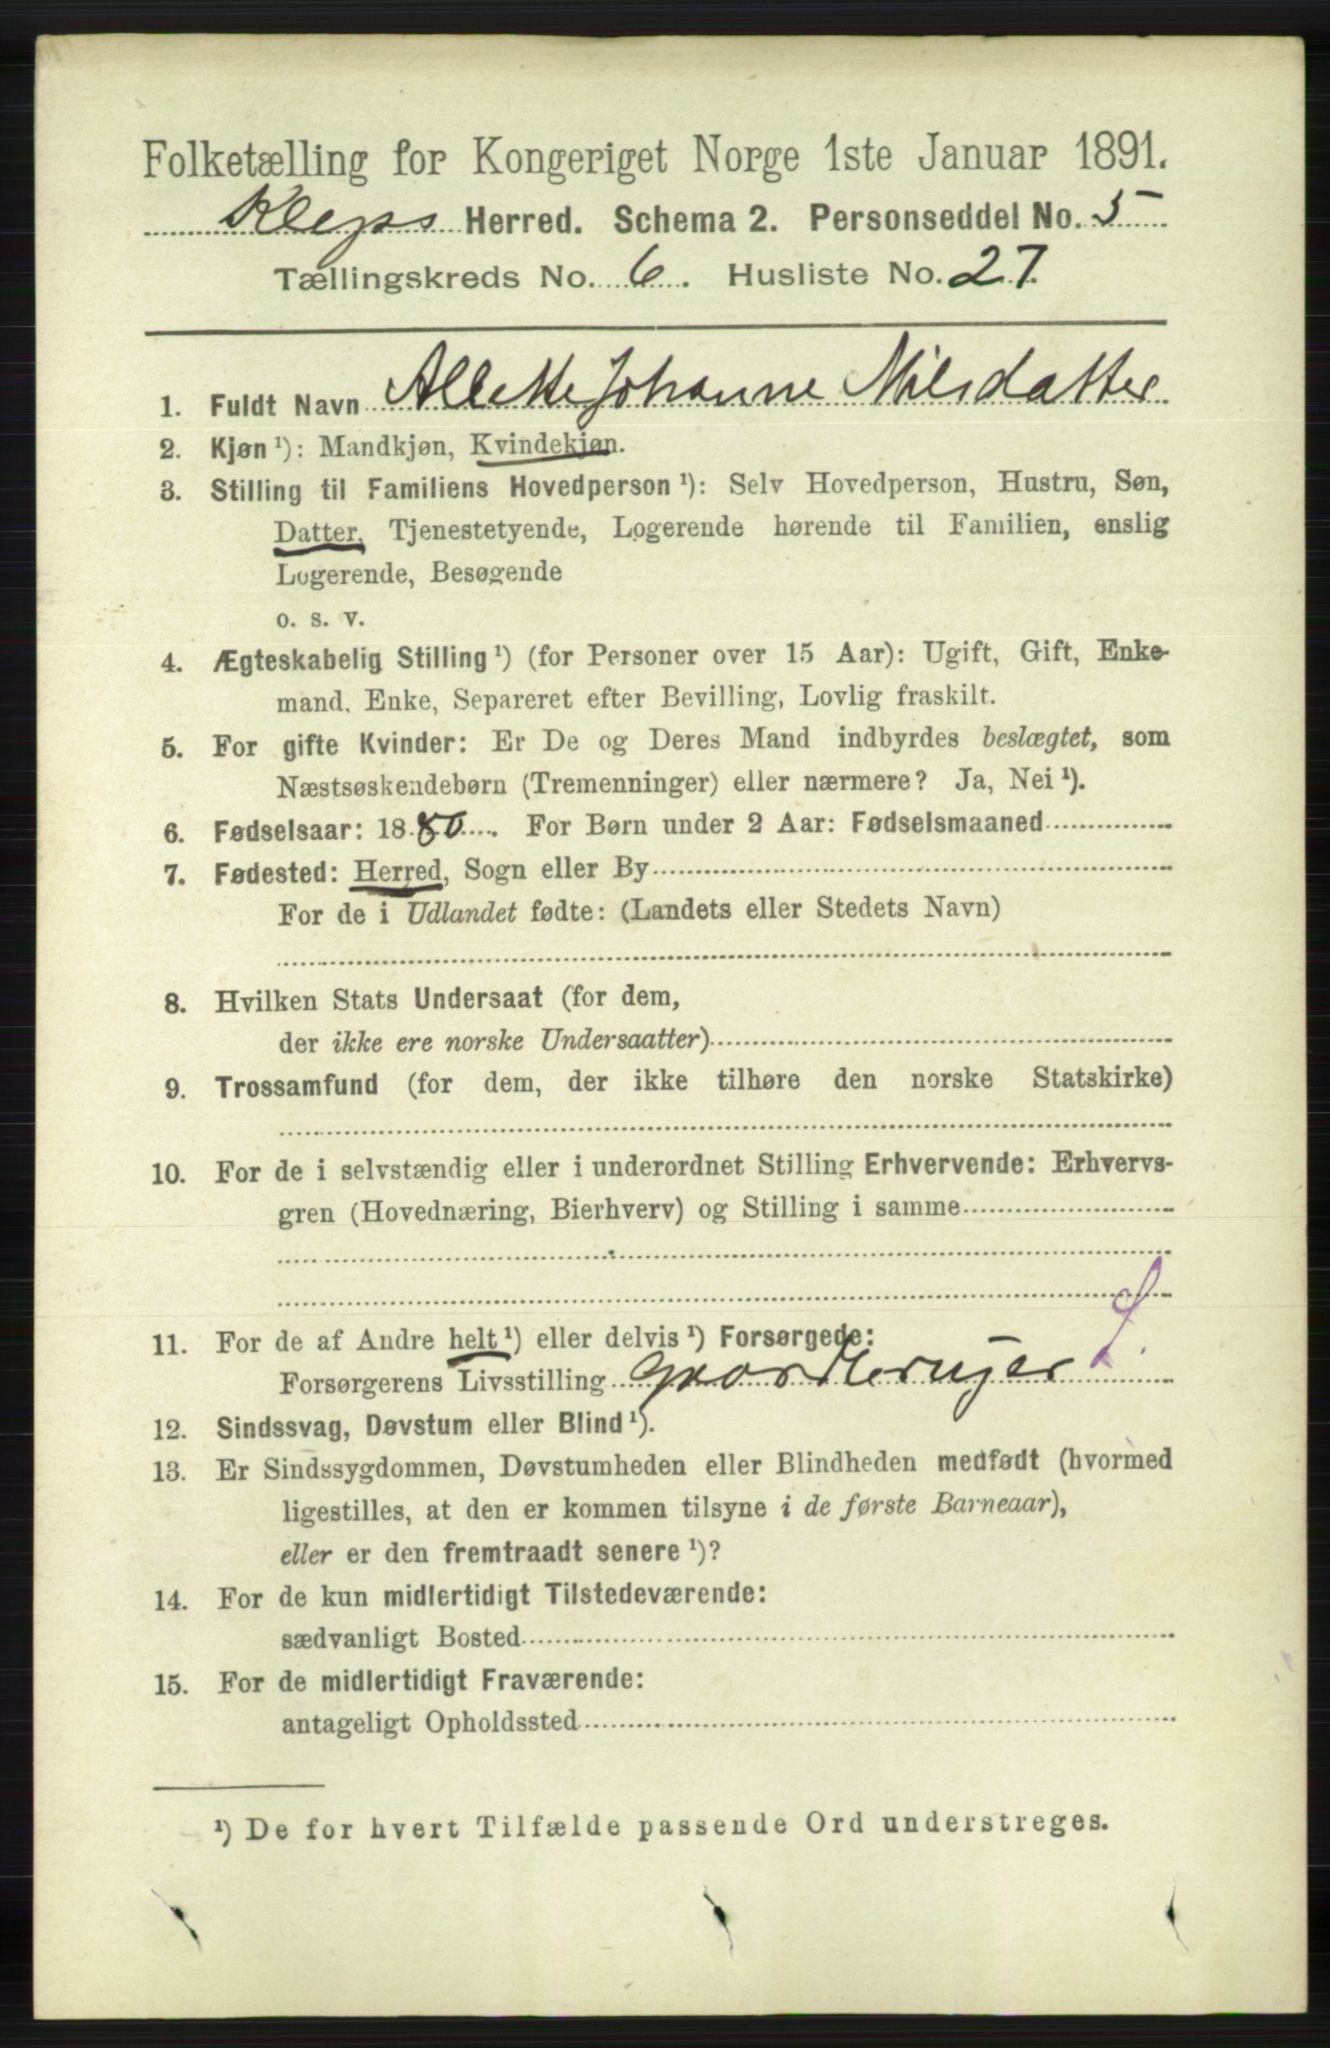 Folketælling for Kongeriget Norge 1ste Januar 1891.
Kleps Herred. Schema 2. Personseddel No. 5
Tællingskreds No. 6. Husliste No. 27.
1. Fuldt Navn Allette Johanne Nilsdatter
2. Kjøn ¹): Mandkjøn, Kvindekjøn.
3. Stilling til Familiens Hovedperson ¹): Selv Hovedperson, Hustru, Søn,
Datter, Tjenestetyende, Logerende hørende til Familien, enslig
Logerende, Besøgende
o. s. v.
4. Ægteskabelig Stilling ¹) (for Personer over 15 Aar): Ugift, Gift, Enke-
mand, Enke, Separeret efter Bevilling, Lovlig fraskilt.
5. For gifte Kvinder: Er De og Deres Mand indbyrdes beslægtet, som
Næstsøskendebørn (Tremenninger) eller nærmere? Ja, Nei ¹).
6. Fødselsaar: 1880. For Børn under 2 Aar: Fødselsmaaned
7. Fødested: Herred, Sogn eller By
For de i Udlandet fødte: (Landets eller Stedets Navn)
8. Hvilken Stats Undersaat (for dem,
der ikke ere norske Undersaatter)
9. Trossamfund (for dem, der ikke tilhøre den norske Statskirke)
10. For de i selvstændig eller i underordnet Stilling Erhvervende: Erhvervs-
gren (Hovednæring, Bierhverv) og Stilling i samme
11. For de af Andre helt ¹) eller delvis ¹) Forsørgede:
Forsørgerens Livsstilling
12. Sindssvag, Døvstum eller Blind ¹).
13. Er Sindssygdommen, Døvstumheden eller Blindheden medfødt (hvormed
ligestilles, at den er kommen tilsyne i de første Barneaar),
eller er den fremtraadt senere ¹)?
14. For de kun midlertidigt Tilstedeværende:
sædvanligt Bosted
15. For de midlertidigt Fraværende:
antageligt Opholdssted
¹) De for hvert Tilfælde passende Ord understreges.